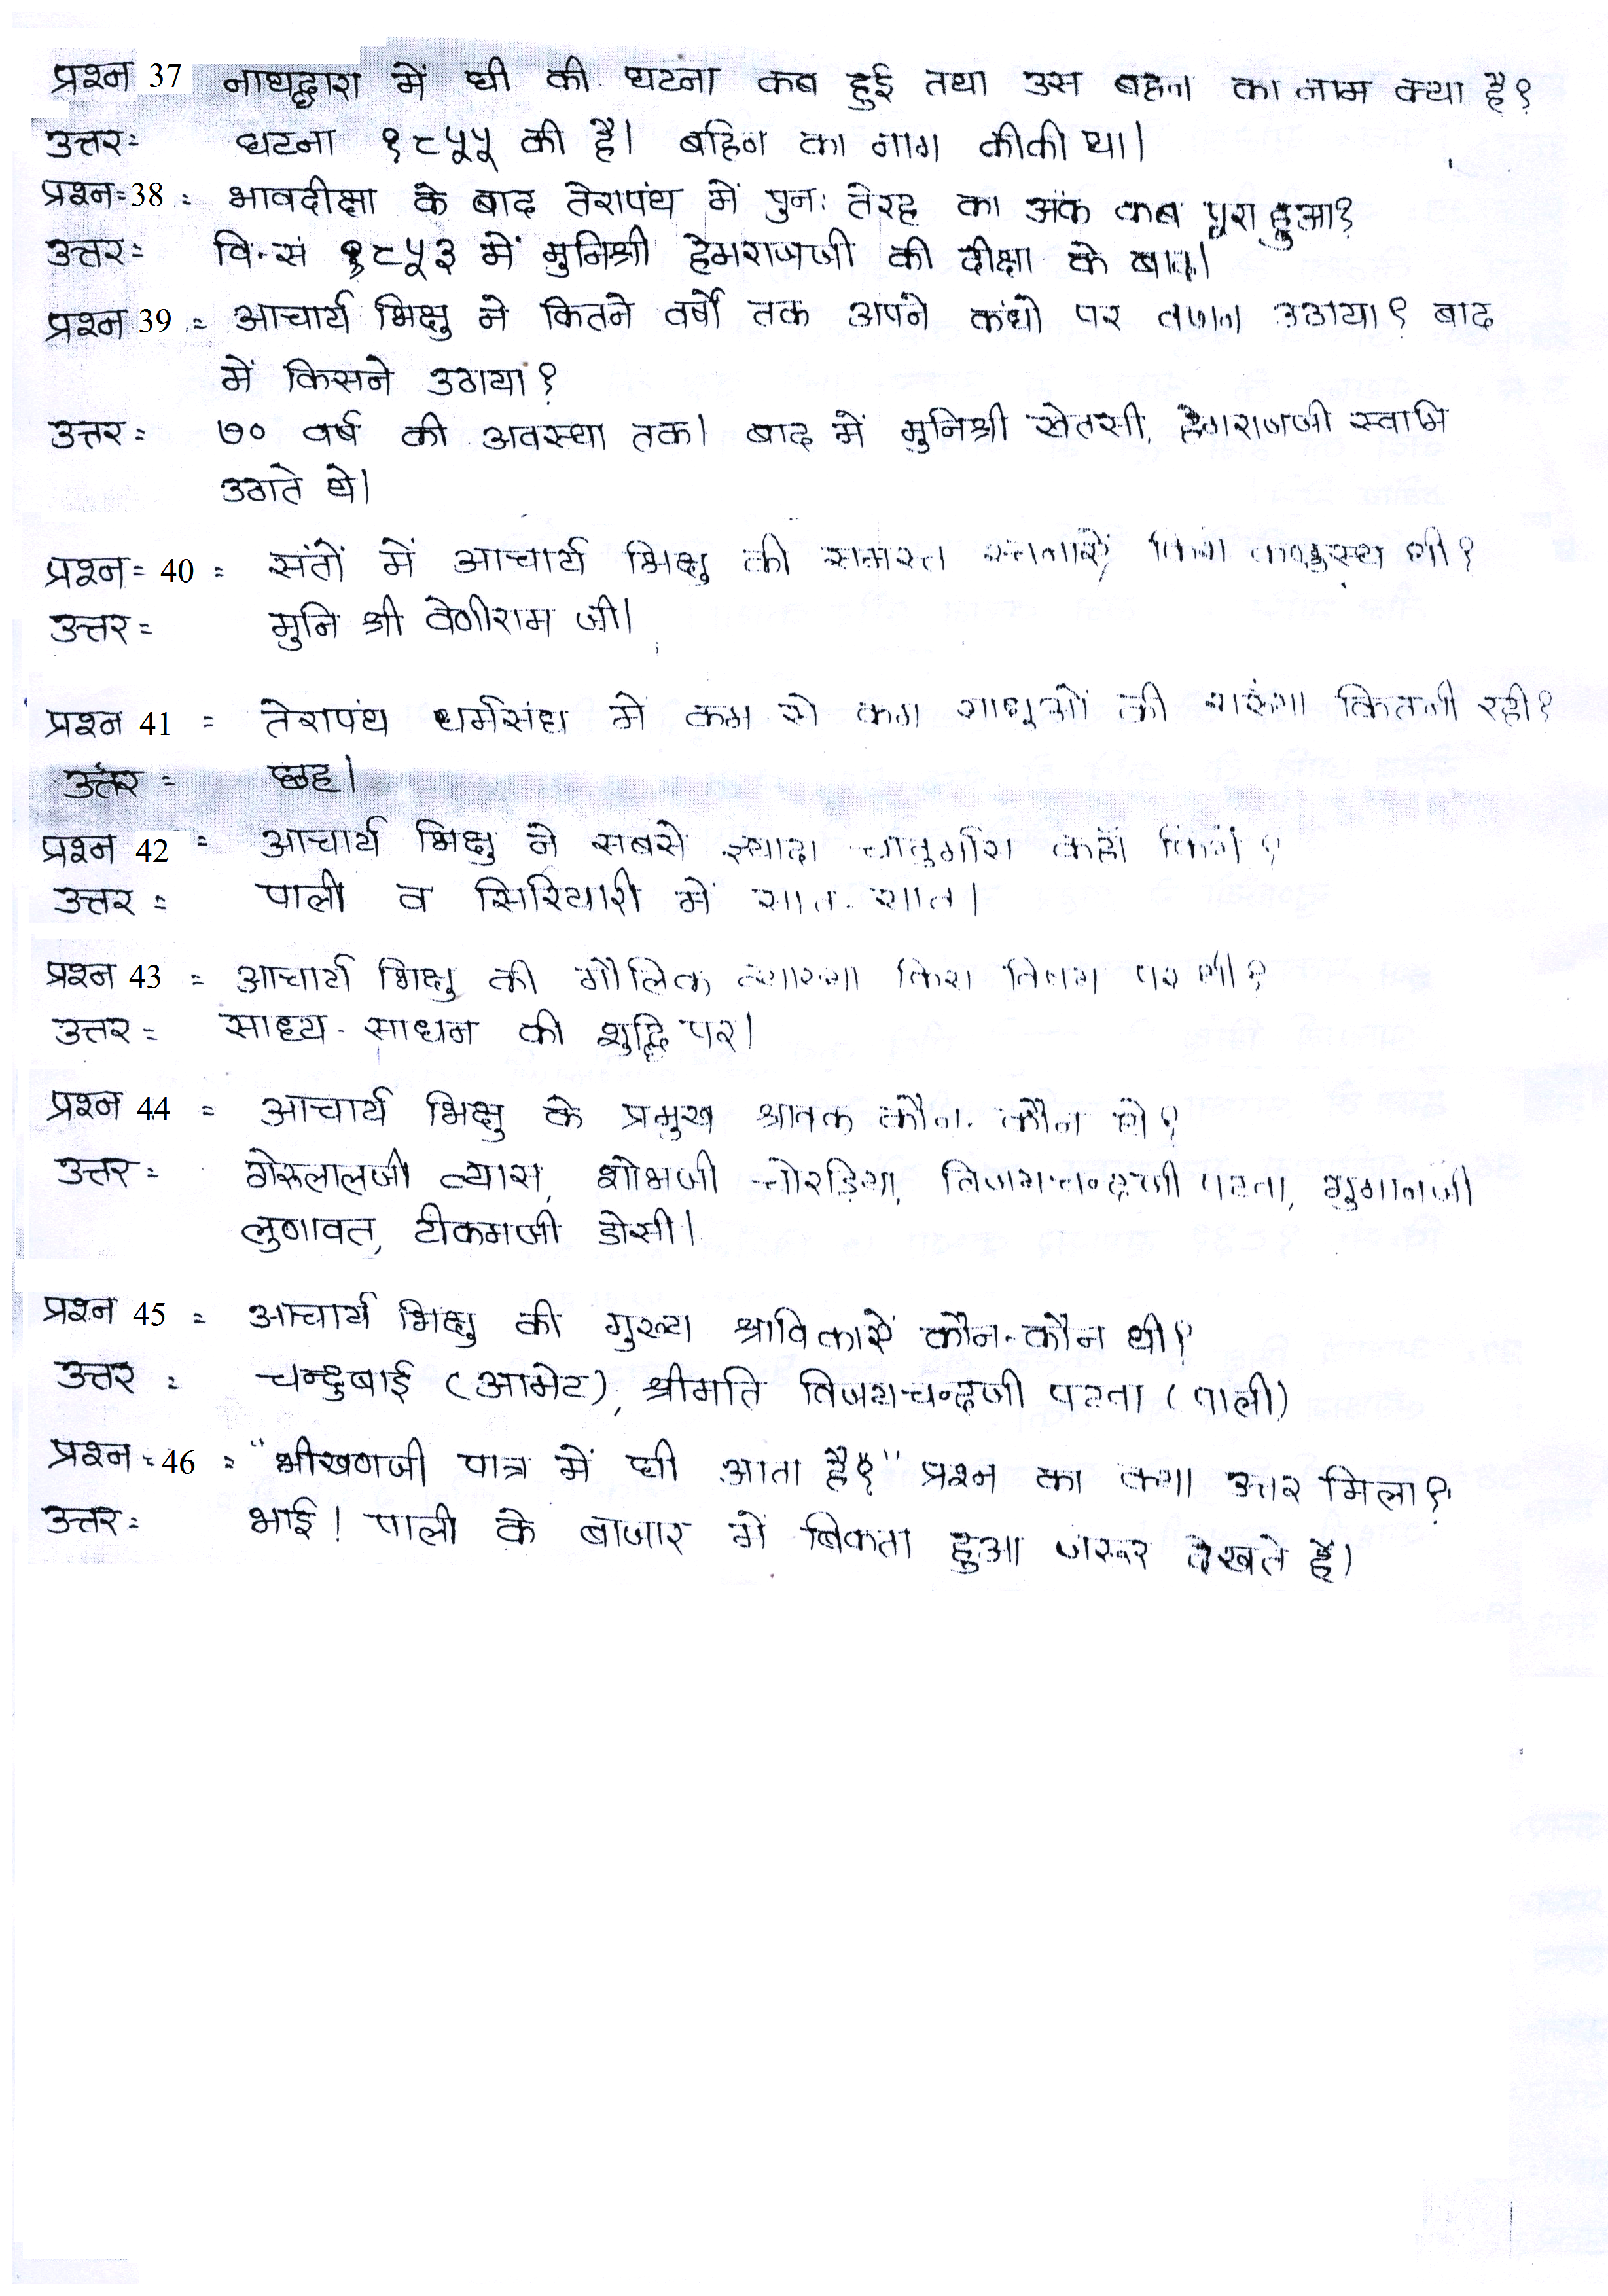 प्रश्न 37 नाथद्वारा में घी की घटना कब हुई तथा उस बहन का नाम क्या है?
उत्तर= घटना १८५५ की है। बहिन का नाम कीकी था।
प्रश्न=38 = भावदीक्षा के बाद तेरापंथ में पुनः तेरह का अंक कब पूरा हुआ?
उत्तर= वि.सं १८५३ में मुनिश्री हेमराजजी की दीक्षा के बाद।
प्रश्न 39 = आचार्य भिक्षु ने कितने वर्षों तक अपने कंधो पर वजन उठाया? बाद
में किसने उठाया?
उत्तर= ७० वर्ष की अवस्था तक। बाद में मुनिश्री खेतसी, हेमराजजी स्वामि
उठाते थे।
प्रश्न= 40 = संतों में आचार्य भिक्षु की समस्त रचनाऐं किसे कण्ठस्थ थी?
उत्तर= मुनि श्री वेणीराम जी।
प्रश्न 41 = तेरापंथ धर्मसंघ में कम से कम साधुओं की संख्या कितनी रही?
उत्तर= छह।
प्रश्न 42 = आचार्य भिक्षु ने सबसे ज्यादा चातुर्मास कहाँ किये?
उत्तर= पाली व सिरियारी में सात-सात।
प्रश्न 43 = आचार्य भिक्षु की मौलिक व्याख्या किस विषय पर थी?
उत्तर= साध्य-साधन की शुद्धि पर।
प्रश्न 44 = आचार्य भिक्षु के प्रमुख श्रावक कौन-कौन थे?
उत्तर= गेरुलालजी व्यास, शोभजी चोरड़िया, विजयचन्दजी पटवा, गुमानजी
लुणावत, टीकमजी डोसी।
प्रश्न 45 = आचार्य भिक्षु की मुख्य श्राविकाऐं कौन-कौन थी?
उत्तर = चन्दुबाई (आमेट), श्रीमति विजयचन्दजी पटवा (पाली)
प्रश्न-46 = "भीखणजी पात्र में घी आता है?" प्रश्न का क्या उत्तर मिला?
उत्तर= भाई! पाली के बाजार में बिकता हुआ जरूर देखते है।